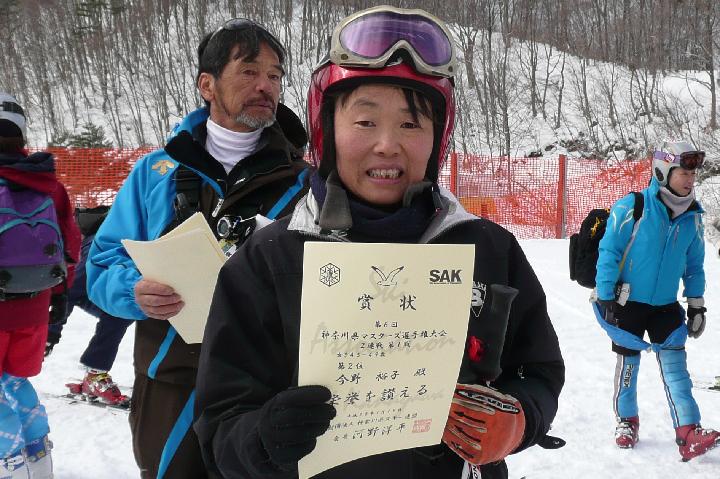 SAK
賞状
第6回
神奈川県マスターズ選手権大会
2連戦 第1戦
第2位
今野 裕子 殿
栄誉を讃える
会長 河野洋平